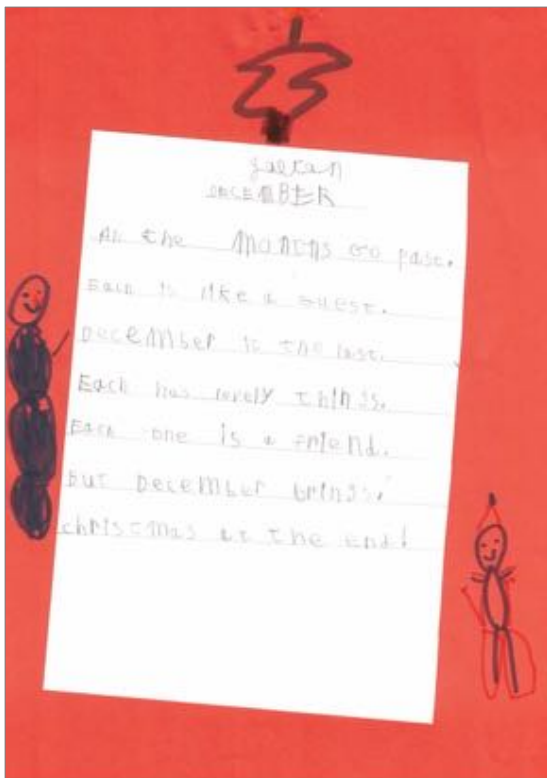 gaetan
DECEMBER
All the Months Go past.
Each is like a Guest.
December is the last.
Each has lovely things.
Each one is a friend.
But December brings.
christmas at the end!